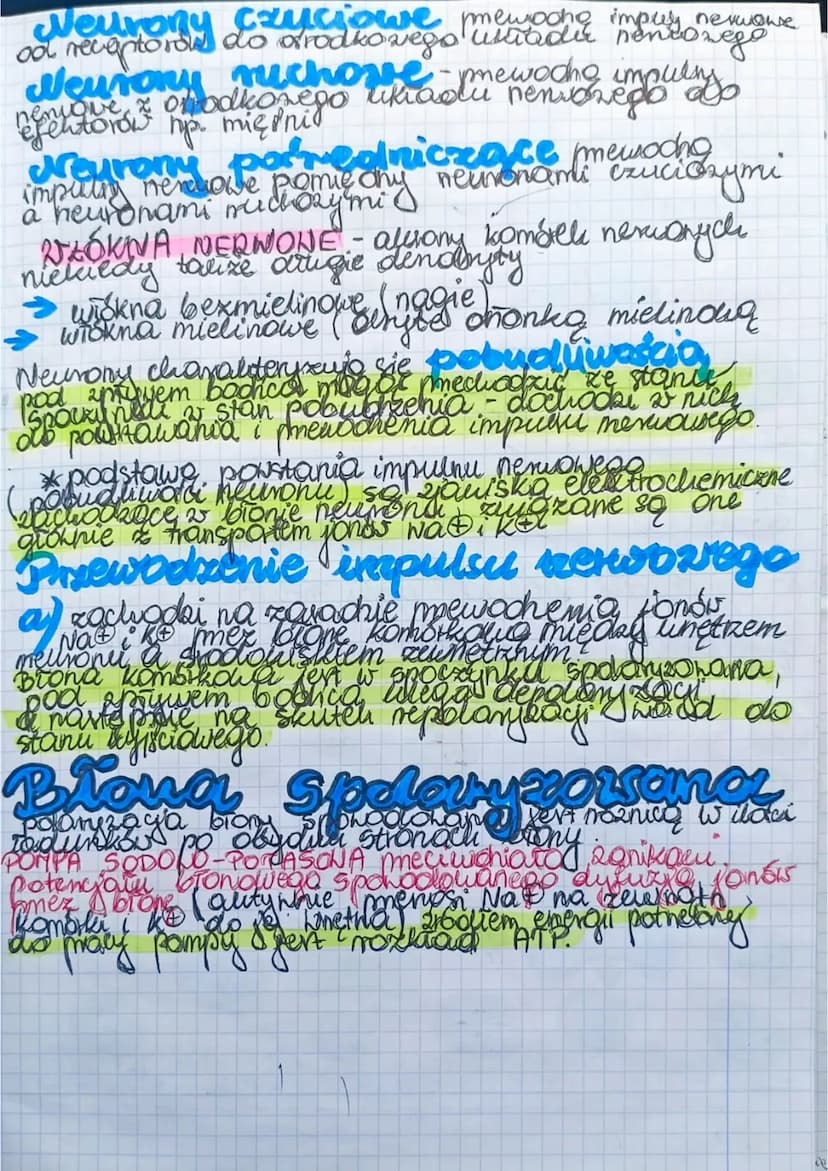 Neurony czuciowe przewodzą impulsy nerwowe
od receptorów do ośrodkowego układu nerwowego
Neurony ruchowe - przewodzą impulsy
nerwowe z ośrodkowego układu nerwowego do
efektorów np. mięśni
Neurony pośredniczące przewodzą
impulsy nerwowe pomiędzy neuronami czuciowymi
a neuronami ruchowymi
WŁÓKNA NERWOWE - aksony komórek nerwowych
niekiedy także długie dendryty
→ włókna bezmielinowe (nagie)
→ włókna mielinowe (okryte osłonką mielinową
Neurony charakteryzują się pobudliwością
pod wpływem bodźca mogą przechodzić ze stanu
spoczynku w stan pobudzenia - dochodzi w nich
do powstawania i przewodzenia impulsu nerwowego.
* podstawą powstania impulsu nerwowego
(pobudliwości neuronu) są zjawiska elektrochemiczne
zachodzące w błonie neuronu, związane są one
głównie z transportem jonów Na⊕ i K⊕
Przewodzenie impulsu nerwowego
a) zachodzi na zasadzie przewodzenia jonów
Na⊕ i K⊕ przez błonę komórkową między wnętrzem
neuronu a środowiskiem zewnętrznym.
Błona komórkowa jest w spoczynku spolaryzowana,
pod wpływem bodźca ulega depolaryzacji,
a następnie na skutek repolaryzacji wraca do
stanu wyjściowego.
Błona spolaryzowana
polaryzacja błony spowodowana jest różnicą w ilości
ładunków po obydwu stronach błony.
POMPA SODOWO-POTASOWA przeciwdziała zanikowi
potencjału błonowego spowodowanego dyfuzją jonów
przez błonę (aktywnie przenosi Na⊕ na zewnątrz
komórki i K⊕ do jej wnętrza) źródłem energii potrzebnej
do pracy pompy jest rozkład ATP.